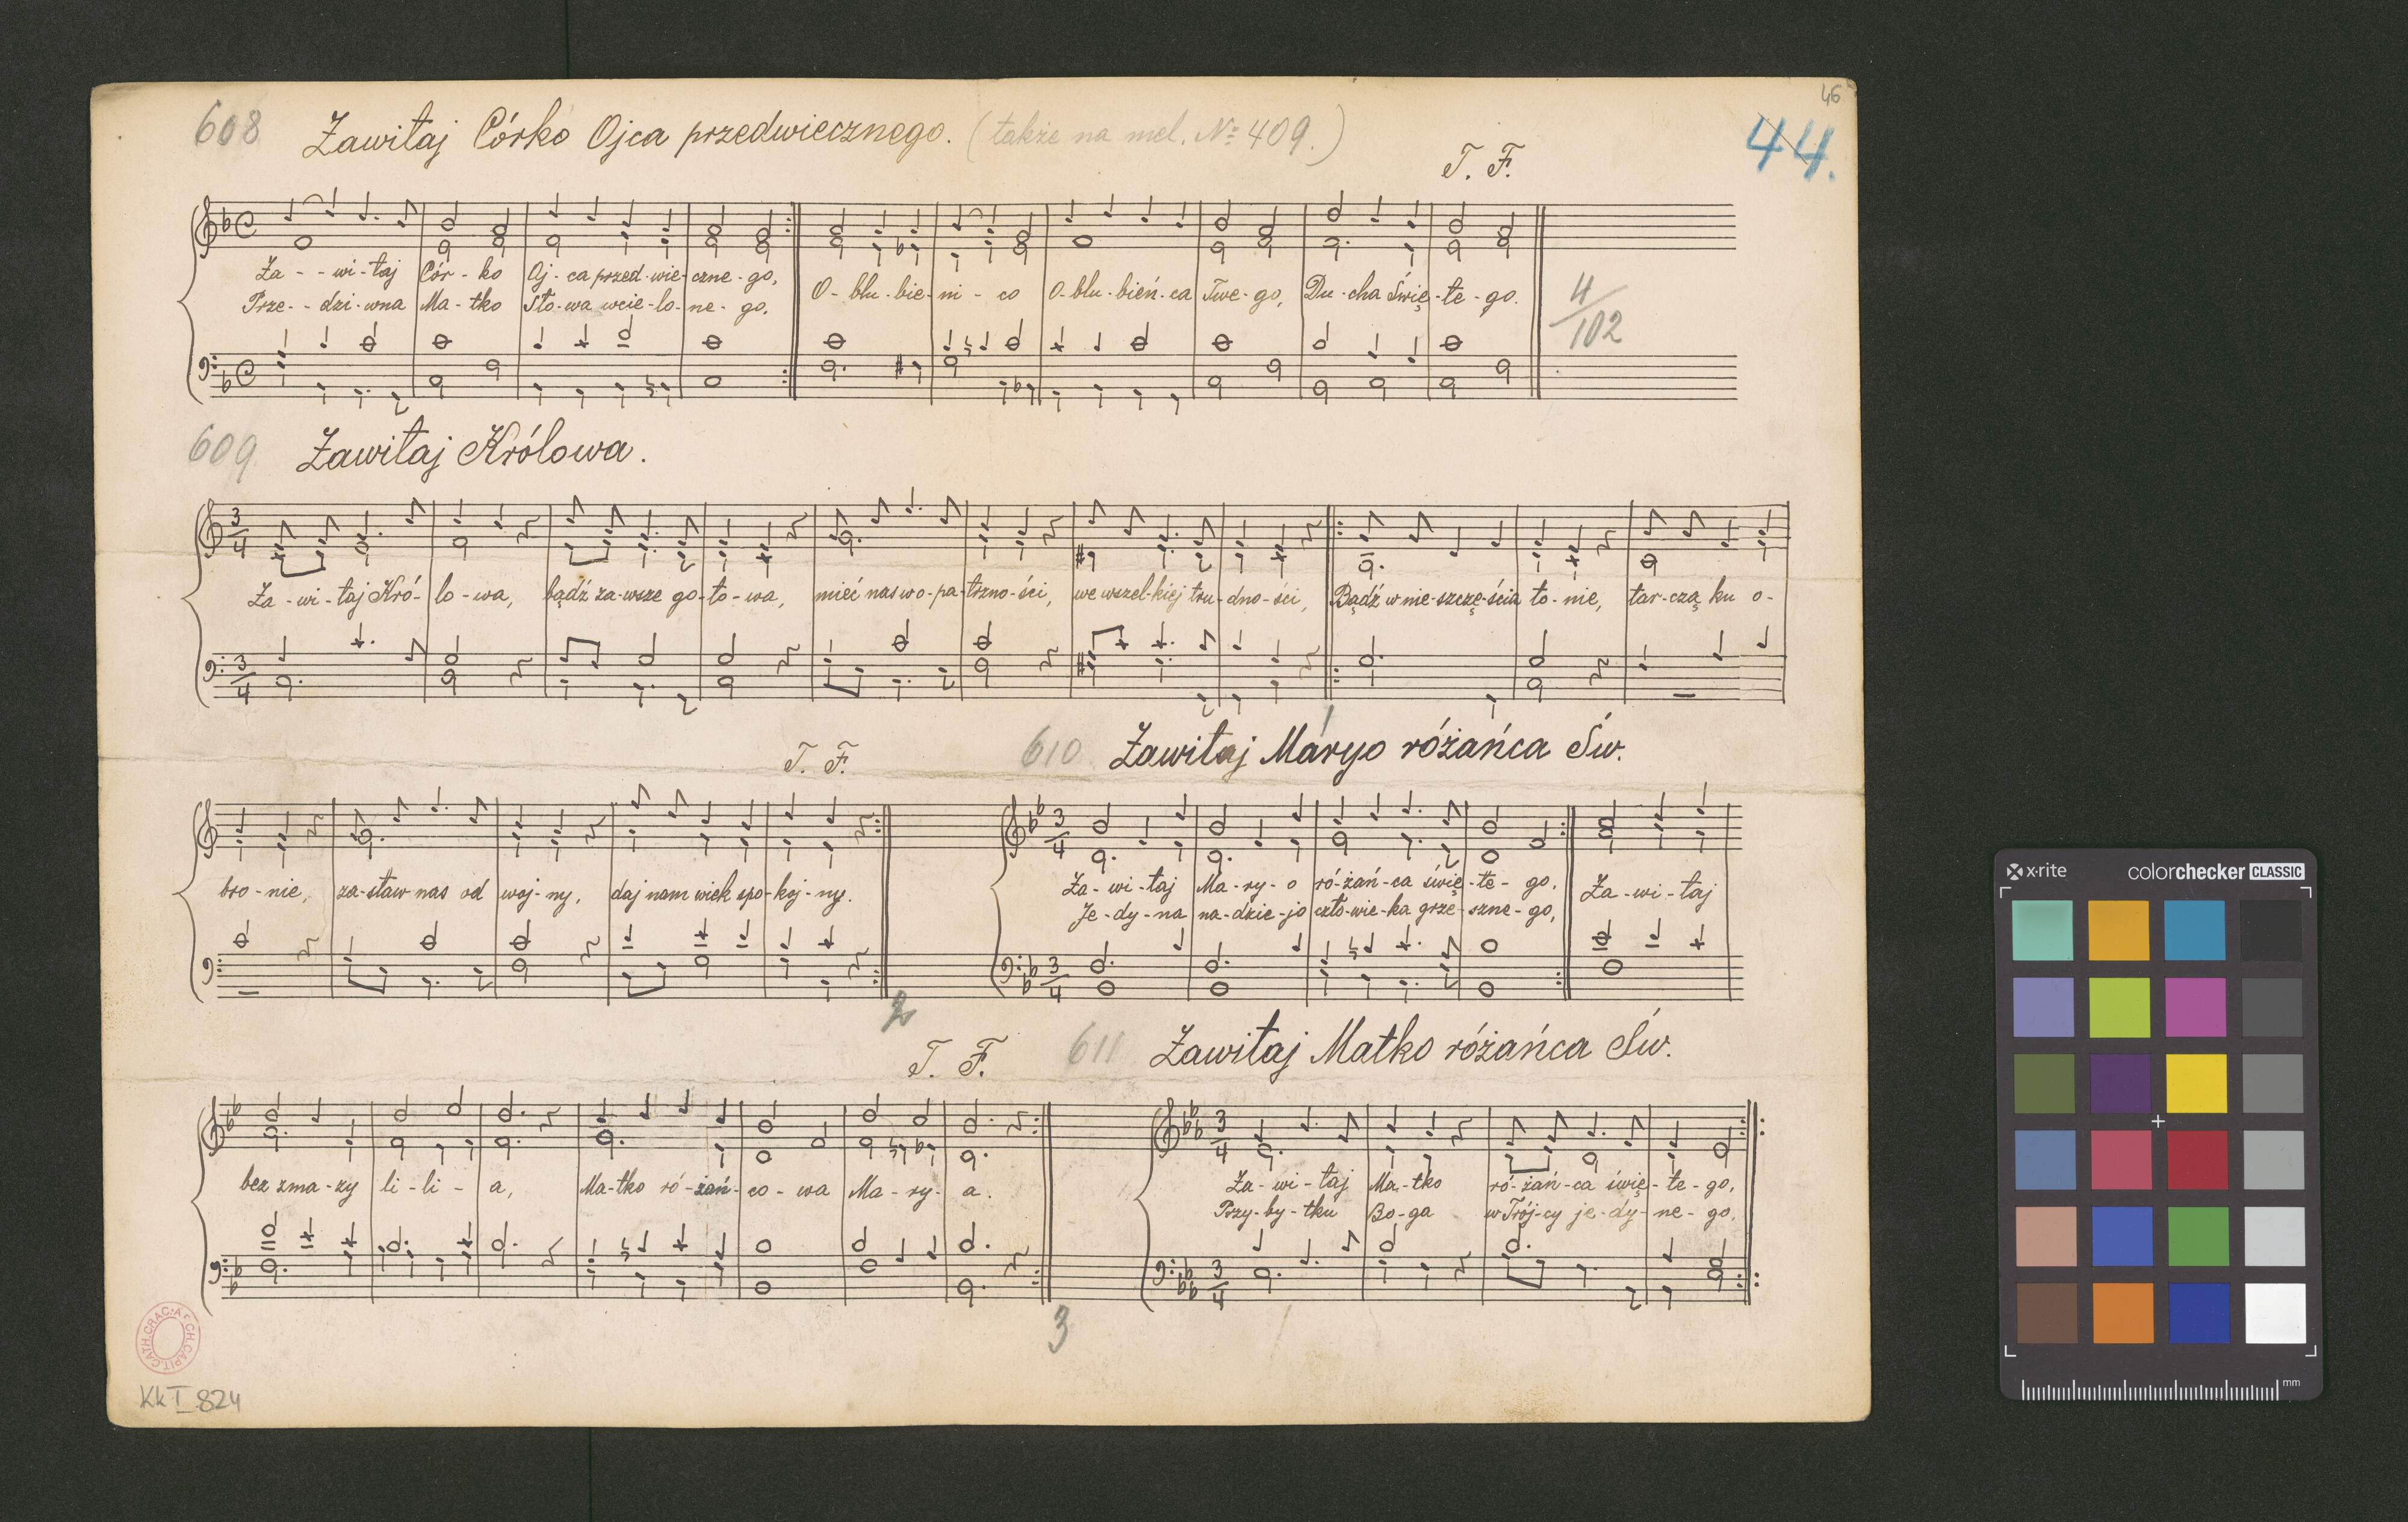 46
608 Zawitaj Córko Ojca przedwiecznego. (także na mel. № 409.)
44.
T. F.
Za - - wi - taj Cór - ko Oj - ca przed - wie - czne - go, O - blu - bie - ni - co O - blu - bień - ca Twe - go, Du - cha Świę - te - go.
Prze - - dzi - wna Ma - tko Sło - wa wcie - lo - ne - go.
4/102
609 Zawitaj Królowa.
3/4 Za - wi - taj Kró - lo - wa, bądź za - wsze go - to - wa, mieć nas w o - pa - trzno - ści, we wszel - kiej tru - dno - ści, Bądź w nie - szczę - ścia to - nie, tar - czą ku o -
3/4
T. F. 610 Zawitaj Maryo różańca Św.
bro - nie, za - staw nas od woj - ny, daj nam wiek spo - koj - ny.
2
3/4 Za - wi - taj Ma - ry - o ró - żań - ca świę - te - go, Za - wi - taj
Je - dy - na na - dzie - jo czło - wie - ka grze - szne - go,
3/4
T. F. 611 Zawitaj Matko różańca Św.
bez zma - zy li - li - a, Ma - tko ró - żań - co - wa Ma - ry - a.
3
3/4 Za - wi - taj Ma - tko ró - żań - ca świę - te - go,
Przy - by - tku Bo - ga w Trój - cy je - dy - ne - go.
3/4
KkI 824
x·rite colorchecker CLASSIC
mm